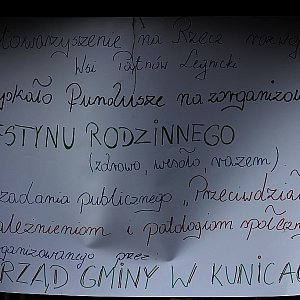 towarzyszenie na Rzecz rozwoj
Wsi Pątnów Legnicki
yskało Fundusze na zorganizow
ESTYNU RODZINNEGO
(zdrowo, wesoło razem)
zadania publicznego „Przeciwdział
ależnieniom i patologiom społeczn
organizowanego przez:
RZĄD GMINY W KUNICAC